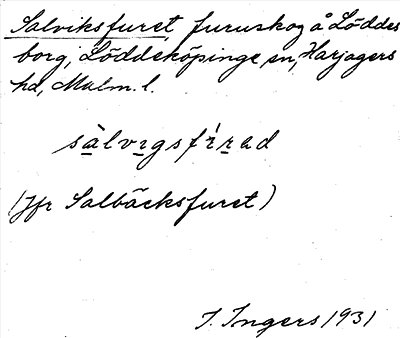 Salviksfuret, furuskog å Löddes
borg, Löddeköpinge sn, Harjagers
hd, Malm. l.
sàlvıgsfırad
(Jfr Salbäcksfuret)
I. Ingers 1931